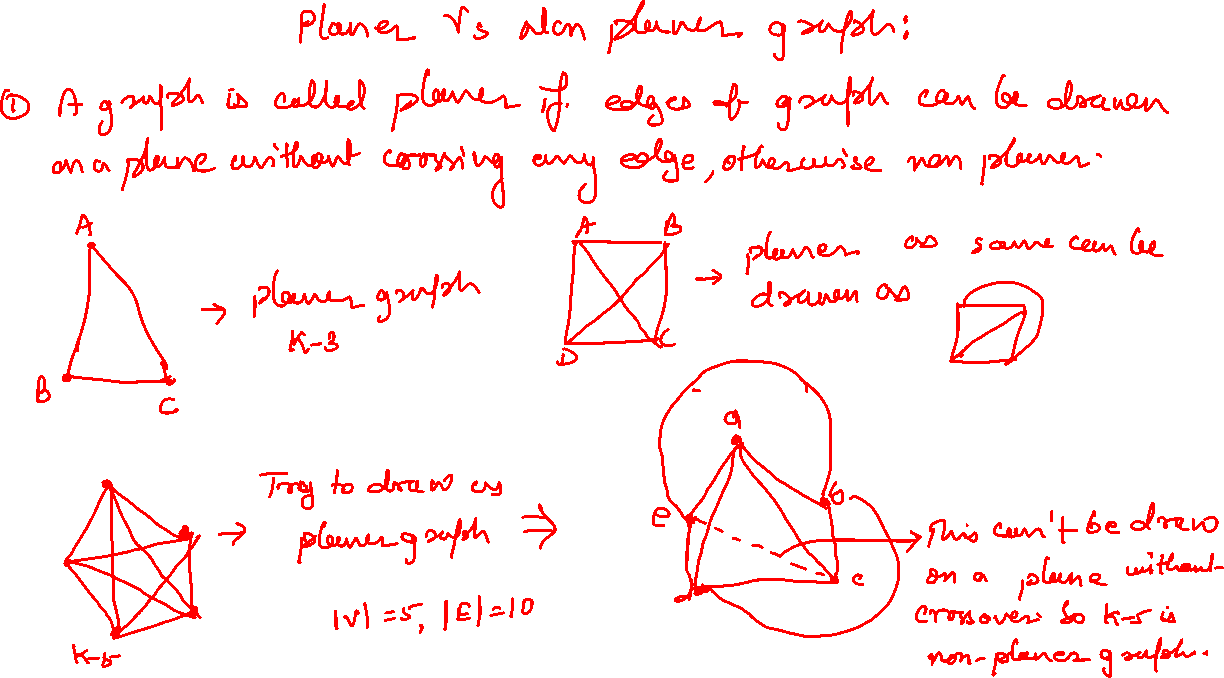 Planer Vs Non planer graph:
① A graph is called planer if edges of graph can be drawen
on a plane without crossing any edge, otherwise non planer.
A
B
C
→ planer graph
K-3
A B
D C
→ planer as same can be
drawen as
K-5
→ Try to draw as
planer graph
|V| = 5, |E| = 10
⇒
a
b
c
d
e
→ This can't be draw
on a plane without
crossover so K-5 is
non-planer graph.